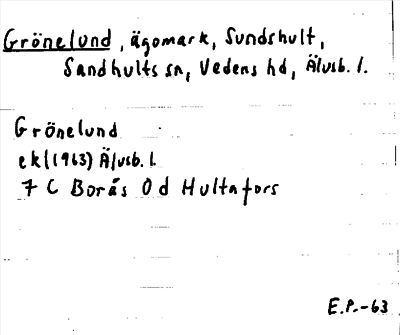 Grönelund, ägomark, Sundshult,
Sandhults sn, Vedens hd, Älvsb. l.
Grönelund
ekl(1963) Älvsb. l.
7 C Borås 0 d Hultafors
E.P.-63